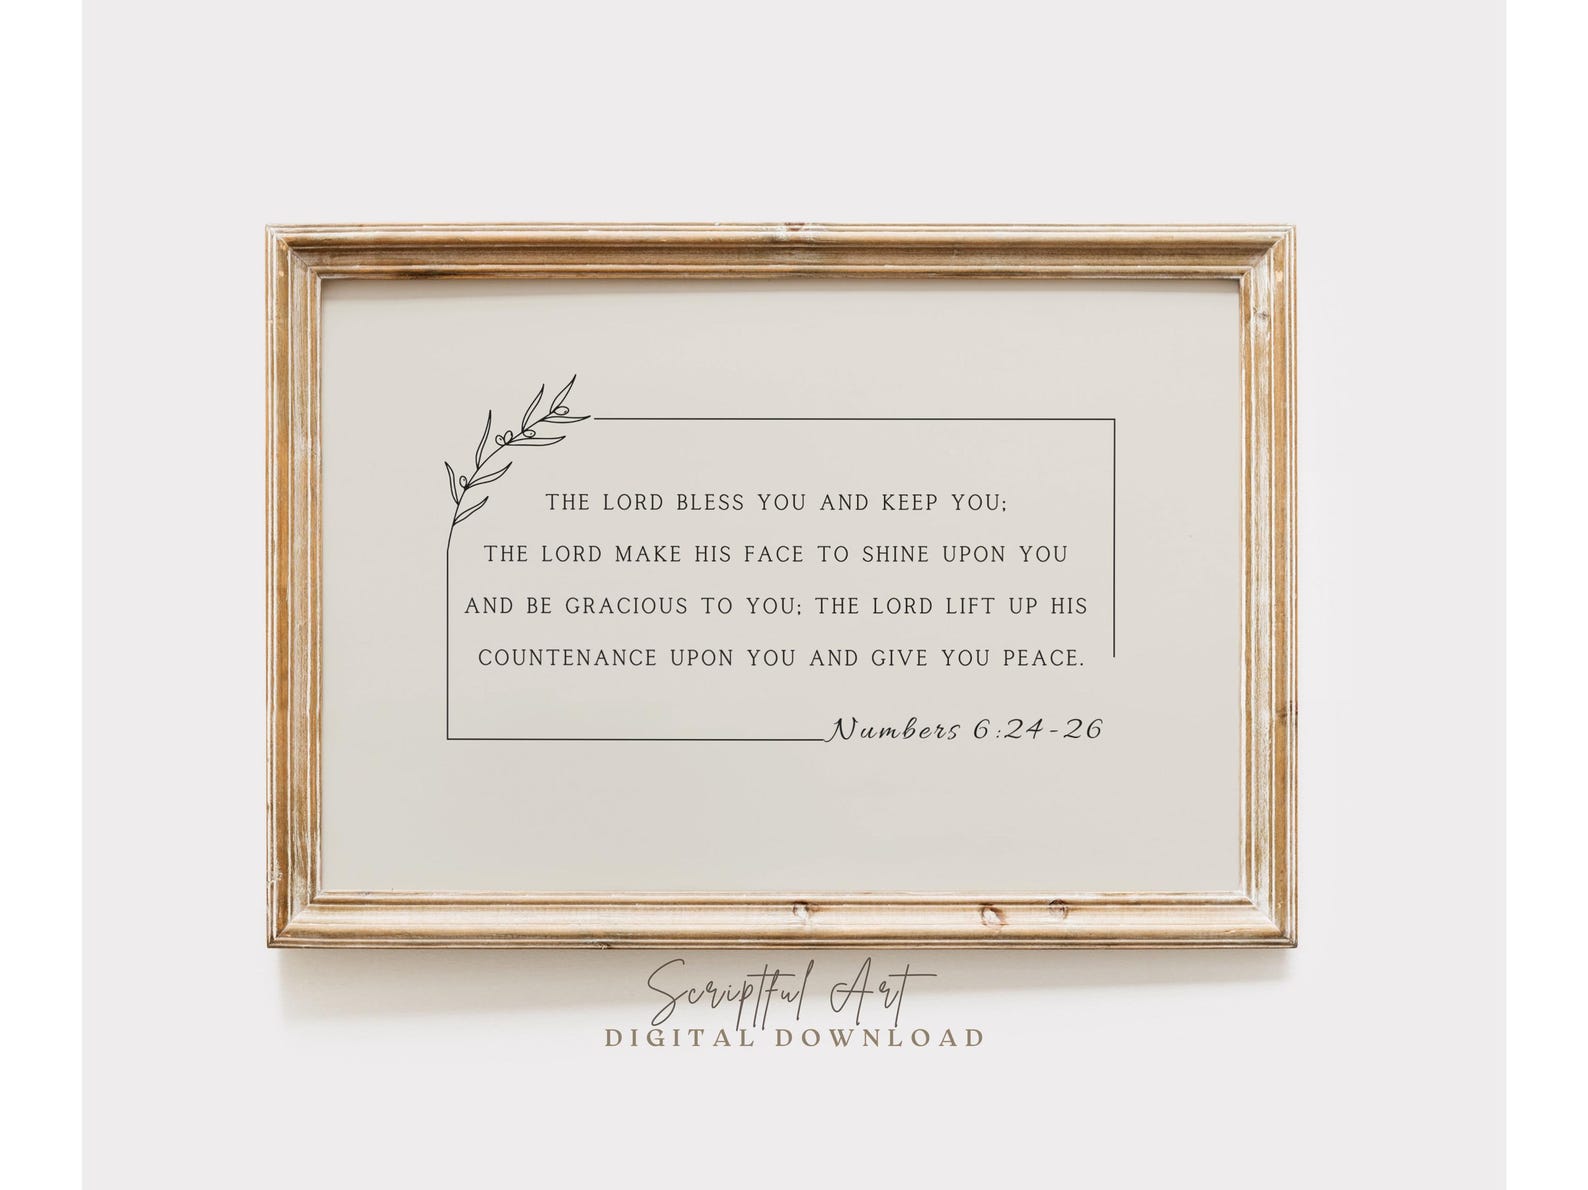 THE LORD BLESS YOU AND KEEP YOU;
THE LORD MAKE HIS FACE TO SHINE UPON YOU
AND BE GRACIOUS TO YOU; THE LORD LIFT UP HIS
COUNTENANCE UPON YOU AND GIVE YOU PEACE.
Numbers 6:24-26
Scriptful Art
DIGITAL DOWNLOAD